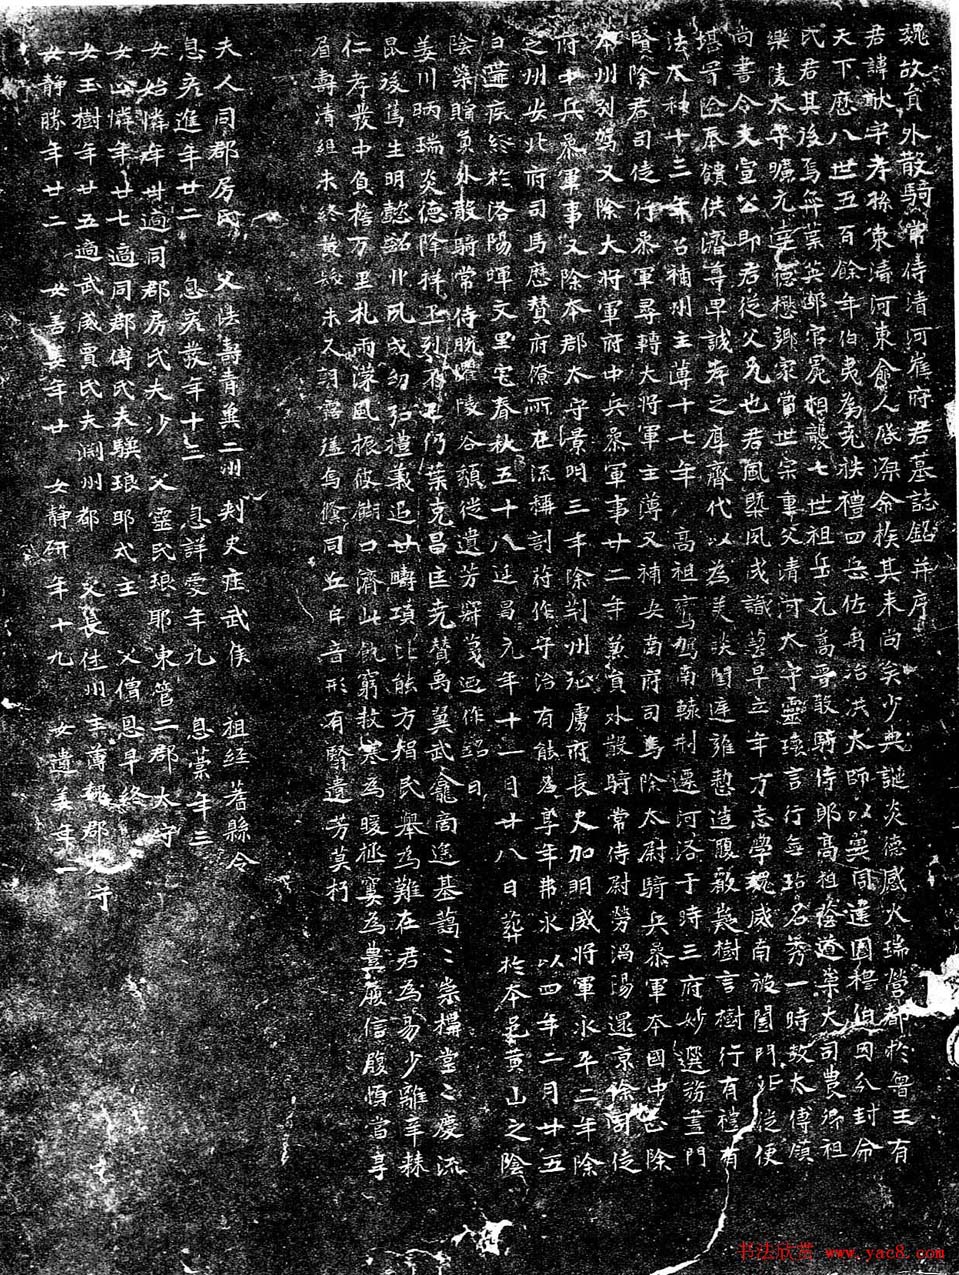 魏故員外散騎常侍清河崔府君墓誌銘并序
君諱猷字孝孫東清河東鄃人啟源命族其来尚矣少典誕炎德感火瑞營都於魯王有
天下歷八世五百餘年伯夷為堯秩禮四岳佐禹治洪大師以翼同達國穆伋因分封命
氏君其後焉弈葉英邵官冕相襲七世祖岳元嵩晋散騎侍郎高祖蔭道業大司農卿祖
樂陵太守曠元達德懋鄉家當世宗重父清河太守靈瓌言行無玷名秀一時故太傅領
尚書令文宣公即君從父兄也君風槩夙成識藝早立年方志學魏威南被闔門北從便
堪冒險奉饋供濟尊卑誠孝之厚齊代以為美談閨庭雍懃造履敬義樹言樹行有禮有
法太和十三年召補州主薄十七年 高祖鸞駕南轅荆遷河洛于時三府妙選務盡門
賢除君司徒行叅軍尋轉大將軍主薄又補安南府司馬除太尉騎兵叅軍本國中正除
本州别駕又除大将軍府中兵叅軍事廿二年兼員外散騎常侍尉勞渦陽還京徐司徒
府中兵叅軍事又除本郡太守景明三年除荆州征虜府長史加明威將軍永平二年除
之州安北府司馬歷賛府僚所在流稱剖符作守治有能名享年弗永以四年二月廿五
日遘疾終於洛陽暉文里宅春秋五十八延昌元年十一日廿八日葬於本邑黄山之陰
陰榮贈員外散騎常侍既懼陵谷頹從遺芳辭蔑迺作銘曰
姜川昞瑞炎德降祥丕烈弈工乃葉克昌匡堯賛禹翼武龕商逵基藹〻崇構堂〻慶流
昆後篤生明懿韶卝夙成幼弘禮義追廿疇項比能方猖民舉為難在君為易少離辛棘
仁孝發中負檐万里札雨濛風振彼餬口濟此飢窮救寒為暖拯寠為豊履信履順當享
眉壽清組未終黄綬未又詞露後烏儵同丘阜音形有賢遺芳莫朽
夫人同郡房氏 父法壽青兾二州刾史庄武侯 祖經著縣令
息彦進年廿二 息彦發年十二 息詳愛年九 息蒙年三
女始憐年卅適同郡房氏夫沙 父靈民琅耶東管二郡太守
女止憐年廿七適同郡傅氏夫驥琅耶式主 父僧恩早終
女玉樹年廿五適武威賈氏夫渊州都 父長住州主薄郡太守
女靜勝年廿二 女善姜年廿 女靜研年十九 女遺姜年一
书法欣赏 www.yac8.com